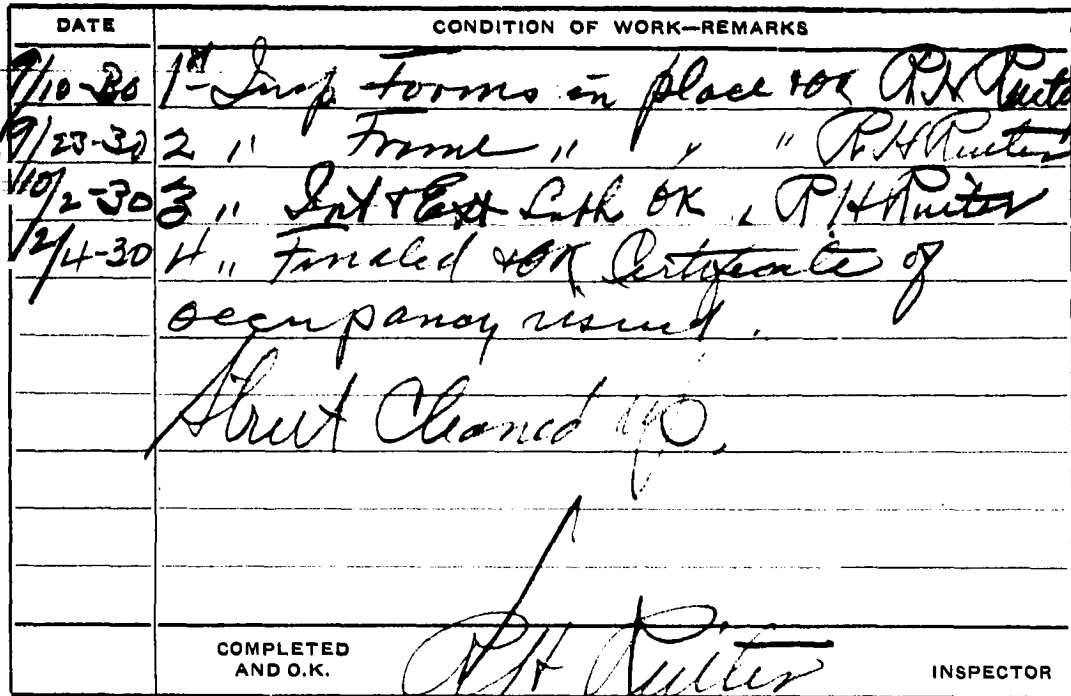 DATE CONDITION OF WORK—REMARKS
9/10-30 1st Insp Forms in place & OK R H Ruiter
9/23-30 2 " Frame " " " R H Ruiter
10/2-30 3 " Int & Ext Lath OK " R H Ruiter
12/4-30 4 " Finaled & OK Certificate of
occupancy issued.
Street Cleaned up.
COMPLETED AND O.K. R H Ruiter INSPECTOR